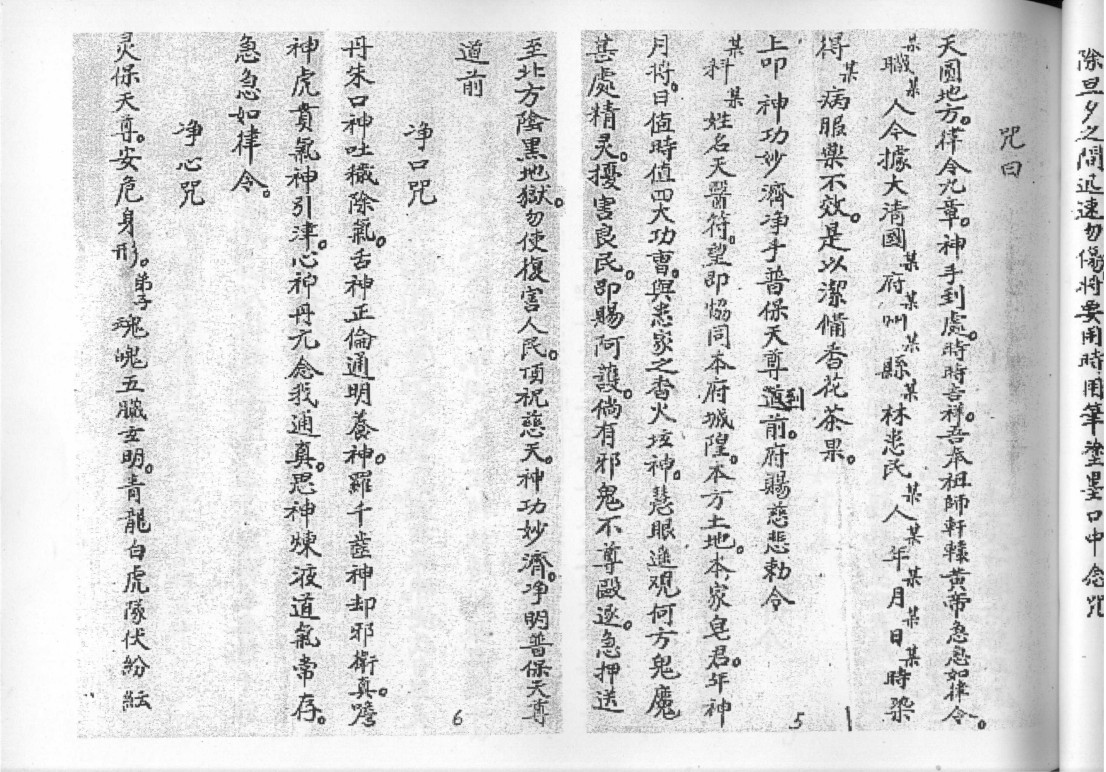 除旦夕之間迅速勿傷将要用時用筆塗墨口中念咒
咒曰
天圓地方。律令九章。神手到處。時時吉祥。吾奉祖師軒轅黃帝急急如律令。
某職某人今據大清國某府某州某縣某林患民某人某年某月某日某時染
得某病服藥不效。是以潔備香花茶果。
上叩神功妙濟净手普保天尊到道前。府賜慈悲勅令
某科某姓名天醫符。望即恊同本府城隍。本方土地。本家皂君。年神
月将。日值時值四大功曹。與患家之香火坛神。慧眼進观何方鬼魔
甚處精灵。擾害良民。即賜阿護。倘有邪鬼不尊毆逐。急押送
5
至北方陰黑地獄。勿使復害人民。頂祝慈天。神功妙濟。净明普保天尊
道前
净口咒
丹朱口神吐穢除氣。舌神正倫通明養神。羅千齒神却邪衛真。喉
神虎賁氣神引津。心神丹元念我通真。思神煉液道氣常存。
急急如律令。
净心咒
灵保天尊。安危身形。弟子魂魄五臟玄明。青龍白虎隊伏紛紜
6